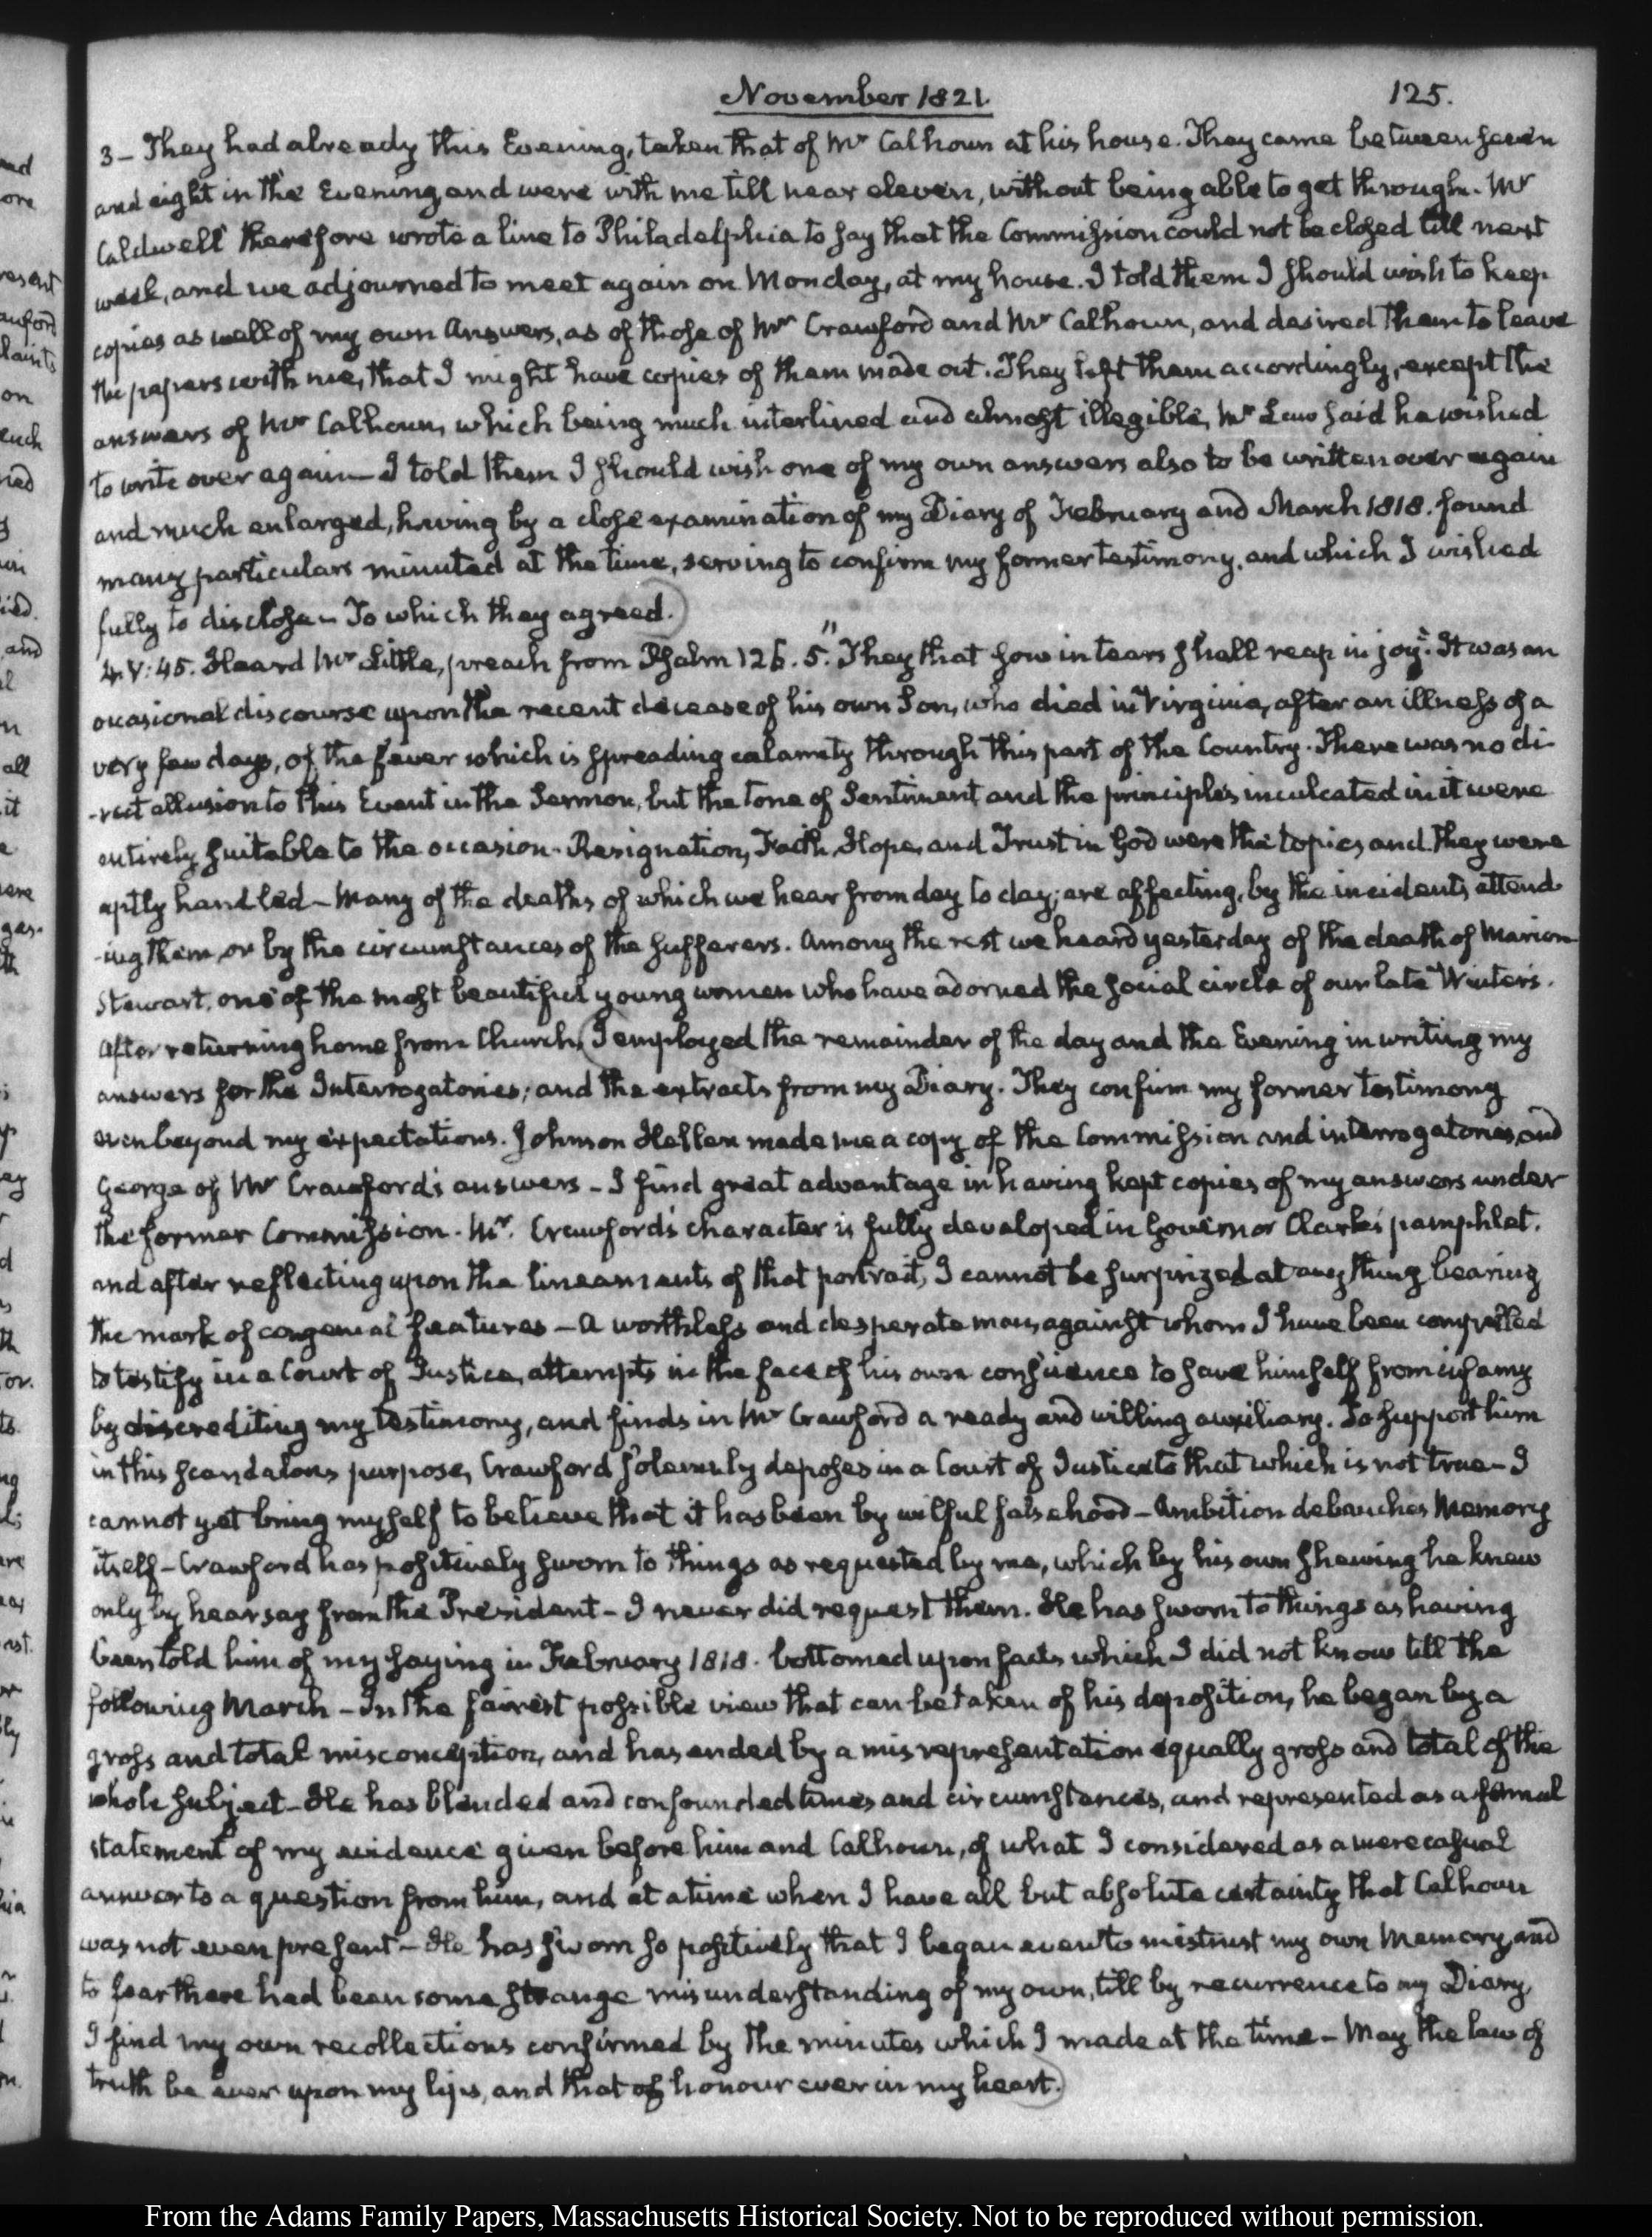 November 1821.
125.
3 – They had already this Evening, taken that of Mr Calhoun at his house. They came between seven
and eight in the Evening and were with me till near eleven, without being able to get through. Mr
Caldwell therefore wrote a line to Philadelphia to say that the Commission could not be closed till next
week, and we adjourned to meet again on Monday, at my house. I told them I should wish to keep
copies as well of my own Answers, as of those of Mr Crawford and Mr Calhoun, and desired them to leave
the papers with me, that I might have copies of them made out. They left them accordingly, except the
answers of Mr Calhoun, which being much interlined and almost illegible, Mr Law said he wished
to write over again – I told them I should wish one of my own answers also to be written over again
and much enlarged, having by a close examination of my Diary of February and March 1818. found
many particulars minuted at the time, serving to confirm my former testimony, and which I wished
fully to disclose – To which they agreed.
4. V: 45. Heard Mr Little, preach from Psalm 126. 5. "They that sow in tears shall reap in joy." It was an
occasional discourse upon the recent decease of his own Son, who died in Virginia, after an illness of a
very few days, of the fever which is spreading calamity through this part of the Country. There was no di-
-rect allusion to this Event in the Sermon, but the tone of Sentiment and the principles inculcated in it were
entirely suitable to the occasion. Resignation, Faith, Hope, and Trust in God were the topics and they were
aptly handled – Many of the deaths of which we hear from day to day, are affecting, by the incidents attend-
-ing them, or by the circumstances of the sufferers. Among the rest we heard yesterday of the death of Marion
Stewart, one of the most beautiful young women who have adorned the social circle of our late Winters.
After returning home from Church, I employed the remainder of the day and the Evening in writing my
answers for the Interrogatories; and the extracts from my Diary. They confirm my former testimony
even beyond my expectations. Johnson Hellen made me a copy of the Commission and interrogatories, and
George of Mr Crawford's answers – I find great advantage in having kept copies of my answers under
the former Commission. Mr. Crawford's character is fully developed in Governor Clark's pamphlet.
and after reflecting upon the lineaments of that portrait, I cannot be surprized at any thing bearing
the mark of congenial features – A worthless and desperate man, against whom I have been compelled
to testify in a Court of Justice, attempts in the face of his own conscience to save himself from infamy
by discrediting my testimony, and finds in Mr Crawford a ready and willing auxiliary. To support him
in this scandalous purpose, Crawford solemnly deposes in a Court of Justice to that which is not true – I
cannot yet bring myself to believe that it has been by wilful falsehood – Ambition debauches Memory
itself – Crawford has positively sworn to things as requested by me, which by his own shewing he knew
only by hearsay from the President – I never did request them. He has sworn to things as having
been told him of my saying in February 1818. bottomed upon facts which I did not know till the
following March – In the fairest possible view that can be taken of his deposition, he began by a
gross and total misconception, and has ended by a misrepresentation equally gross and total of the
whole subject – He has blended and confounded times and circumstances, and represented as a formal
statement of my evidence given before him and Calhoun, of what I considered as a mere casual
answer to a question from him, and at a time when I have all but absolute certainty that Calhoun
was not even present – He has sworn so positively that I began even to mistrust my own Memory, and
to fear there had been some strange misunderstanding of my own, till by recurrence to my Diary,
I find my own recollections confirmed by the minutes which I made at the time – May the law of
truth be ever upon my lips, and that of honour ever in my heart.
From the Adams Family Papers, Massachusetts Historical Society. Not to be reproduced without permission.